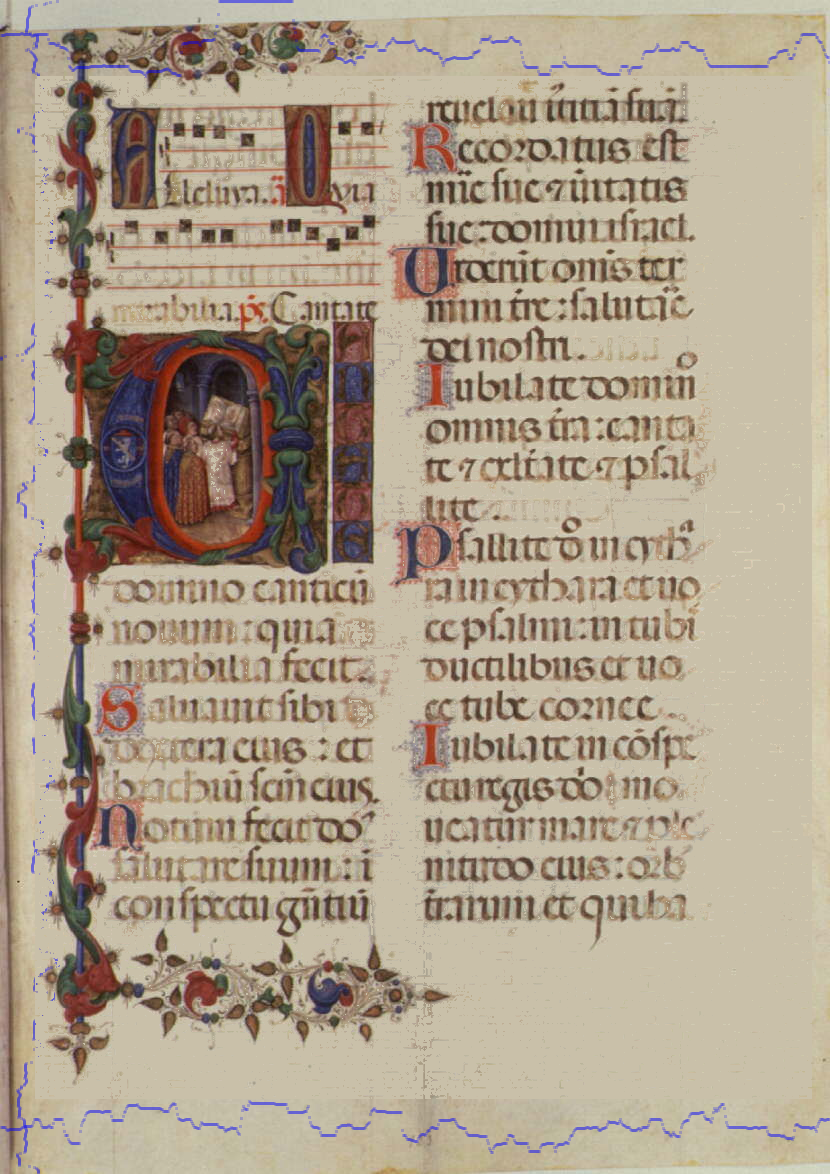 Alleluya. a Q uia
mirabilia. ps. Cantate
CANTATE
domino canticū
novum : quia
mirabilia fecit.
Saluauit sibi
dextera eius : et
brachiū scm̄ eius.
Notum fecit do
salutare suum : ī
conspectu gentiū
reuelauit iustitiā suā.
Recordatus est
mīe sue ⁊ ūitatis
sue : domui israel.
Uiderūt omīs ter
mini tr̄e : salutāe
dei nostri.
Iubilate domino
omnis tr̄a : canta
te ⁊ exltate ⁊ psal
lite.
Psallite dō in cyth
ra in cythara et uo
ce psalmi : in tubi
ductilibus et uo
ce tube cornee.
Iubilate in cōspe
ctu regis dō : mo
ueatur mare ⁊ ple
nitudo eius : orb
trarum et qui ha